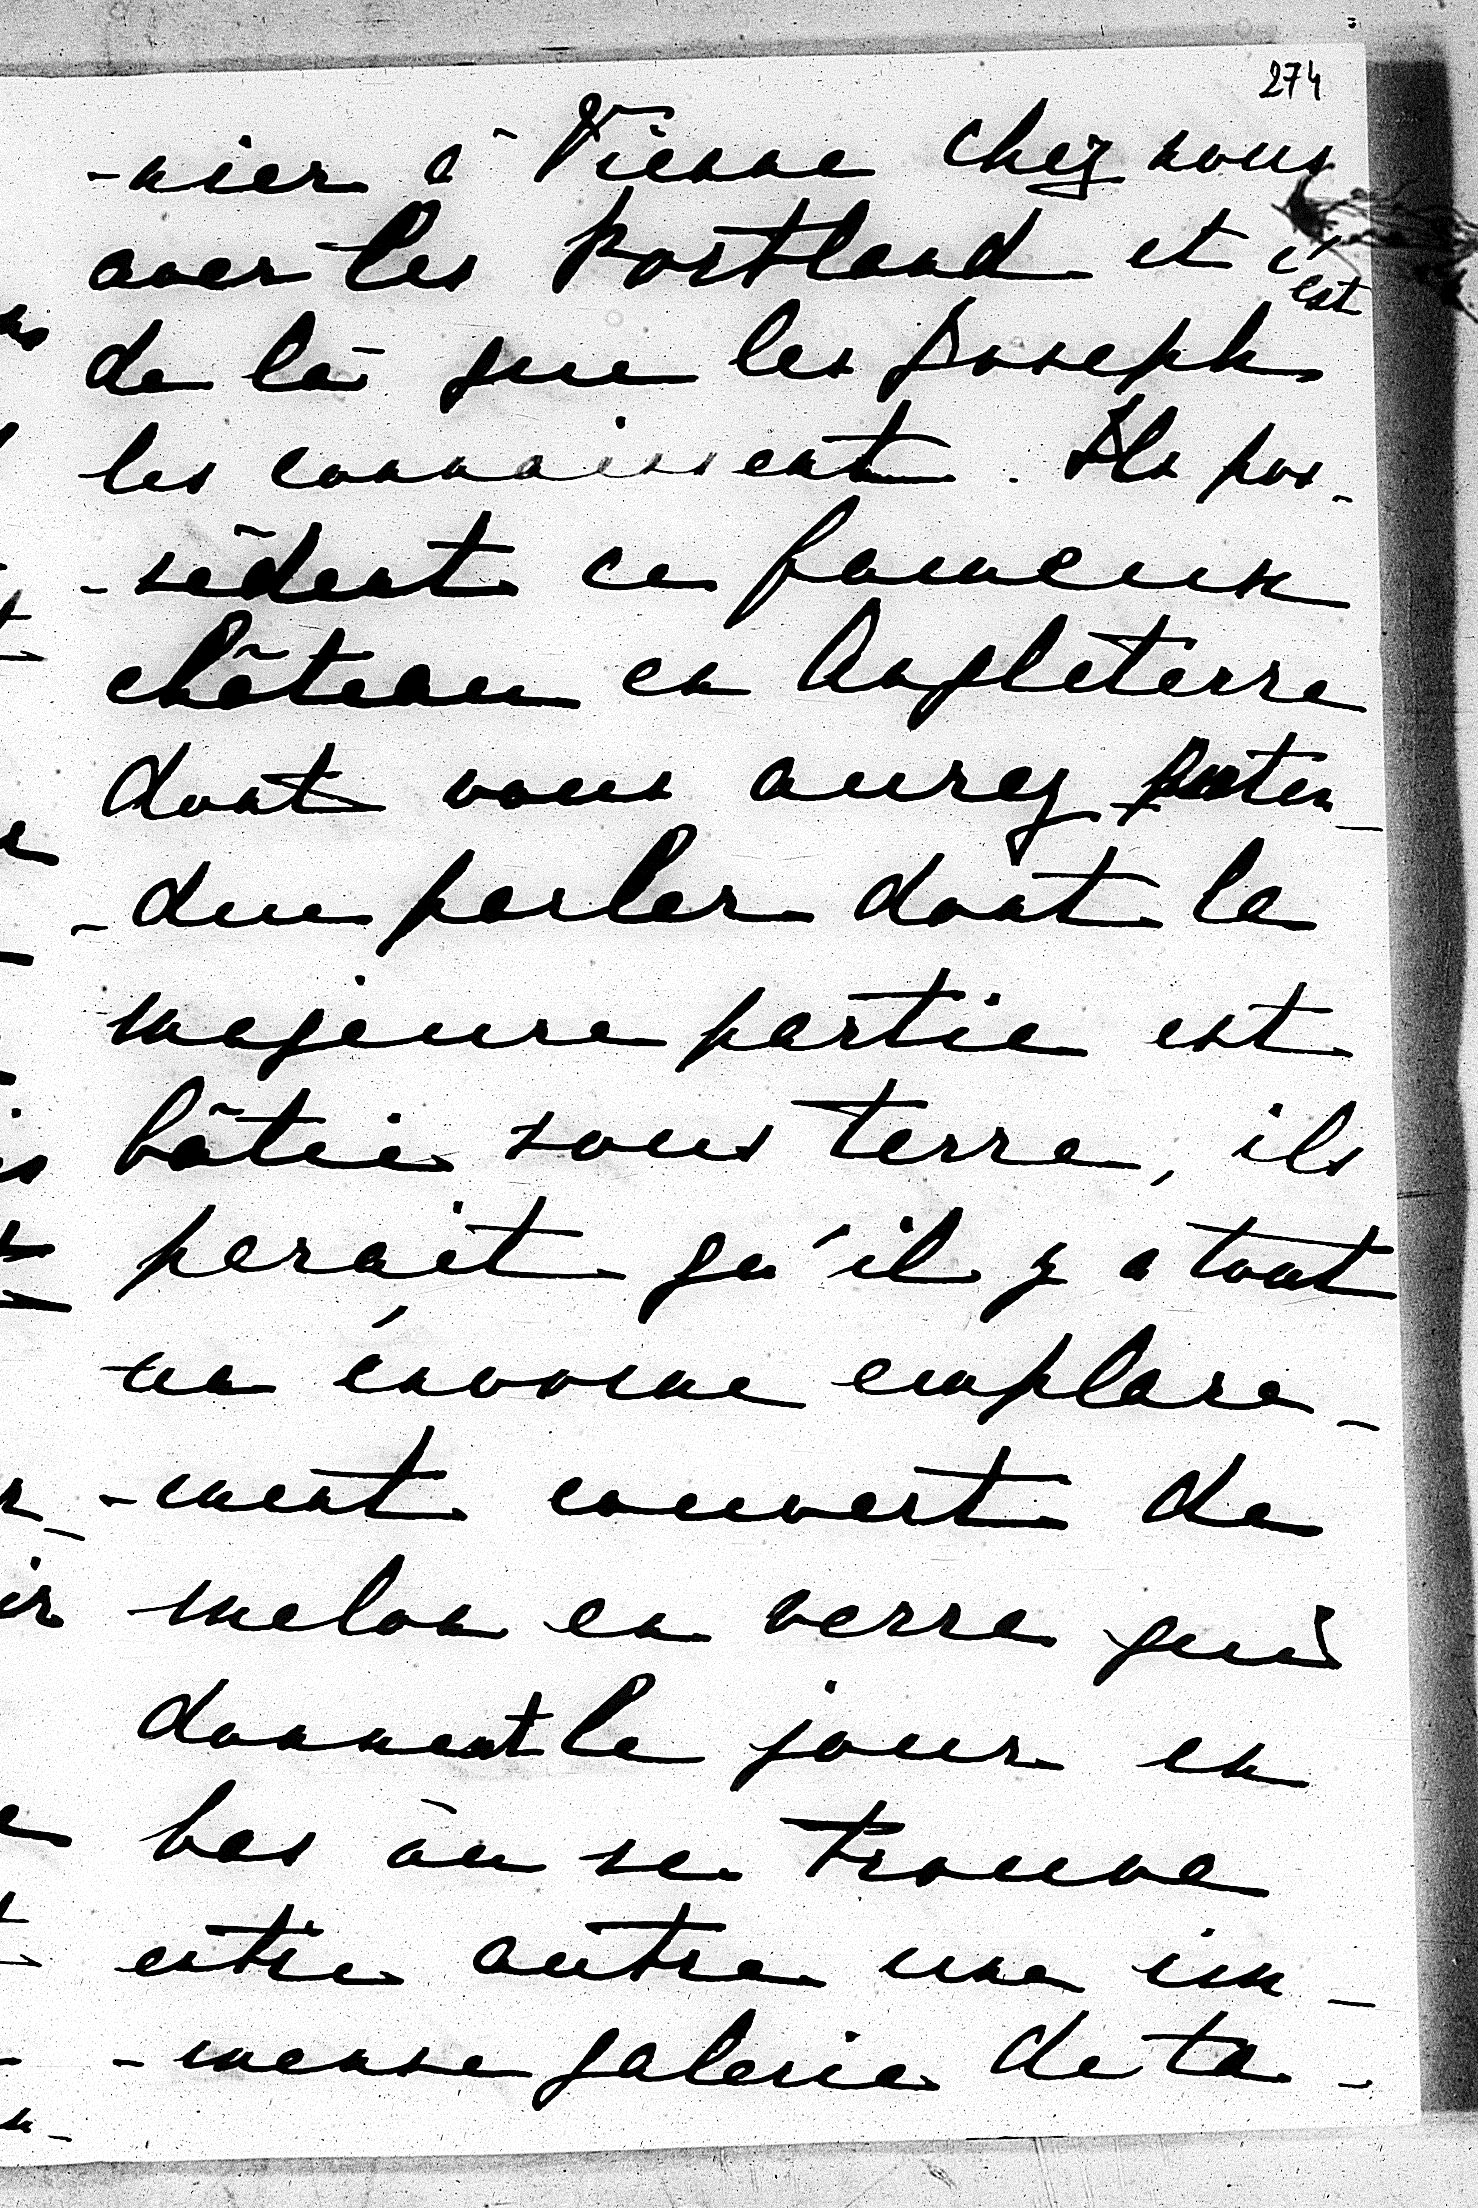 274
-nier à Vienne chez nous
avec les Portland et c'est
de là que les Joseph
les connaissent. Ils pos-
-sèdent ce fameux
château en Angleterre
dont vous aurez enten-
-du parler dont la
majeure partie est
bâtie sous terre, ils
parait qu'il y a tout
un énorme emplace-
-ment couvert de
melon en verre qui
donnent le jour en
bas où se trouve
entre autre une im-
-mense galerie de ta-